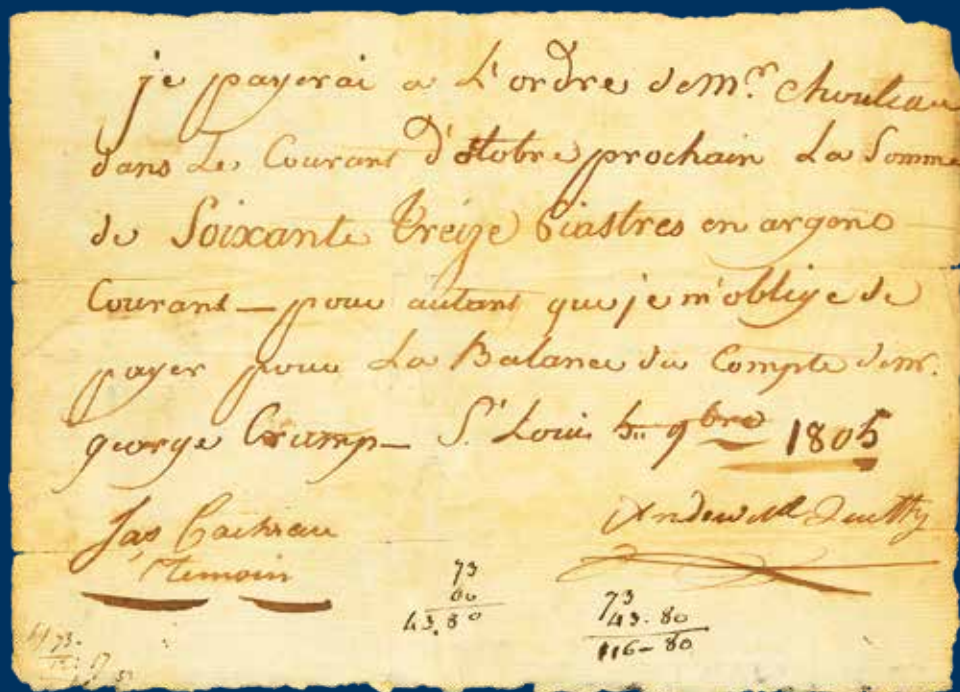 je payerai a L'ordre de Mr. Chouteau
dans Le Courant D'octobre prochain La Somme
de Soixante treize Piastres en argent
Courant — pour autant que je m'oblige de
payer pour La Balance du Compte de mr.
george Crump — St Louis 5.. 9bre 1805
Jas
temoin
73
60
43.80
73
43.80
116-80
73.